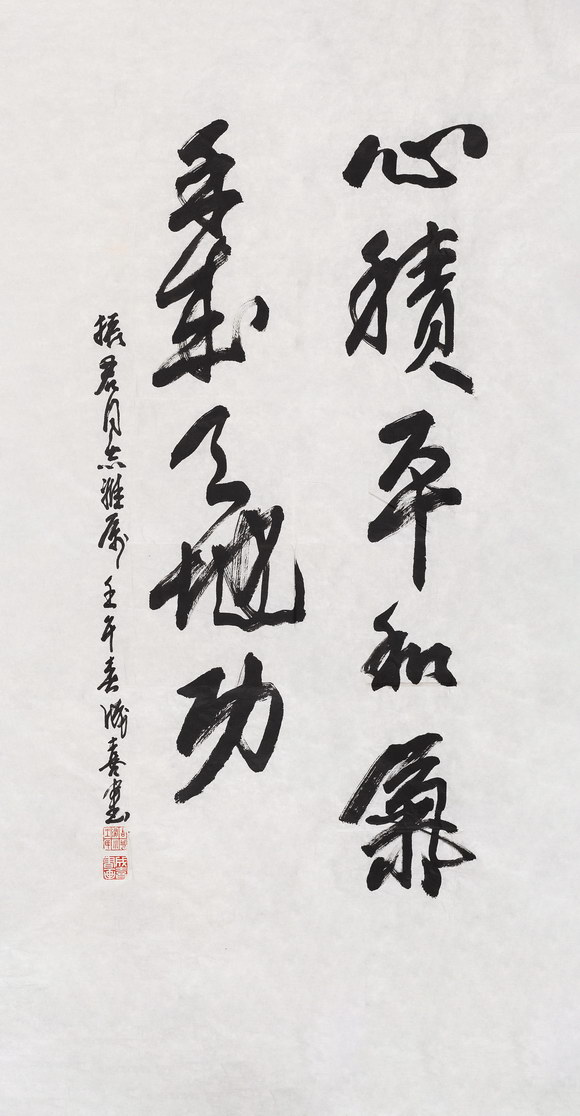 心積平和氣
手成天地功
振君同志雅属 壬午春 成喜書